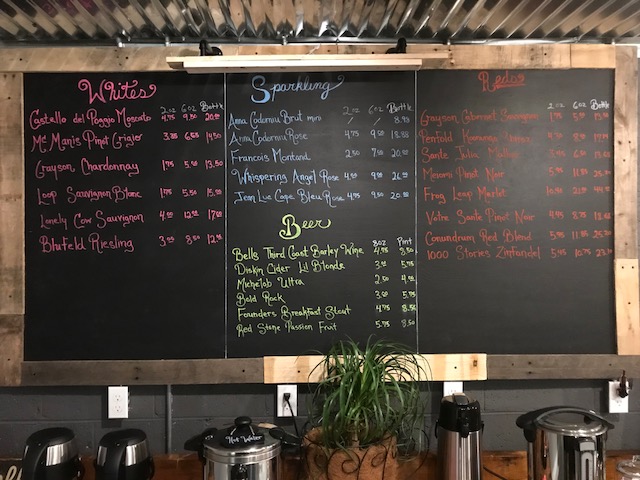 Whites
2oz 6oz Bottle
Castello del Poggio Moscato 4.75 9.50 20.00
McManis Pinot Grigio 3.25 6.25 14.50
Grayson Chardonnay 1.75 5.25 13.50
Loop Sauvignon Blanc 1.75 5.50 15.00
Lonely Cow Sauvignon 4.00 12.00 17.00
Blufeld Riesling 3.00 8.50 12.75
Sparkling
2oz 6oz Bottle
Anna Codorniu Brut mini / / 8.95
Anna Codorniu Rose 4.75 9.50 18.88
Francois Montand 2.50 7.00 20.00
Whispering Angel Rose 4.50 9.00 26.00
Jean Luc Cape Bleu Rose 4.75 9.50 20.00
Beer
8oz Pint
Bells Third Coast Barley Wine 4.75 8.50
Diskin Cider Lil Blonde 3.00 5.75
Michelob Ultra 2.50 4.00
Bold Rock 3.00 5.75
Founders Breakfast Stout 4.75 8.50
Red Stone Passion Fruit 5.75 8.50
Reds
2oz 6oz Bottle
Grayson Cabernet Sauvignon
Penfold
Sante Julia
Meiomi Pinot Noir
Frog Leap Merlot
Votre Sante Pinot Noir 4.25 8.75
Conundrum Red Blend
1000 Stories Zinfandel 5.45 10.75
Hot Water